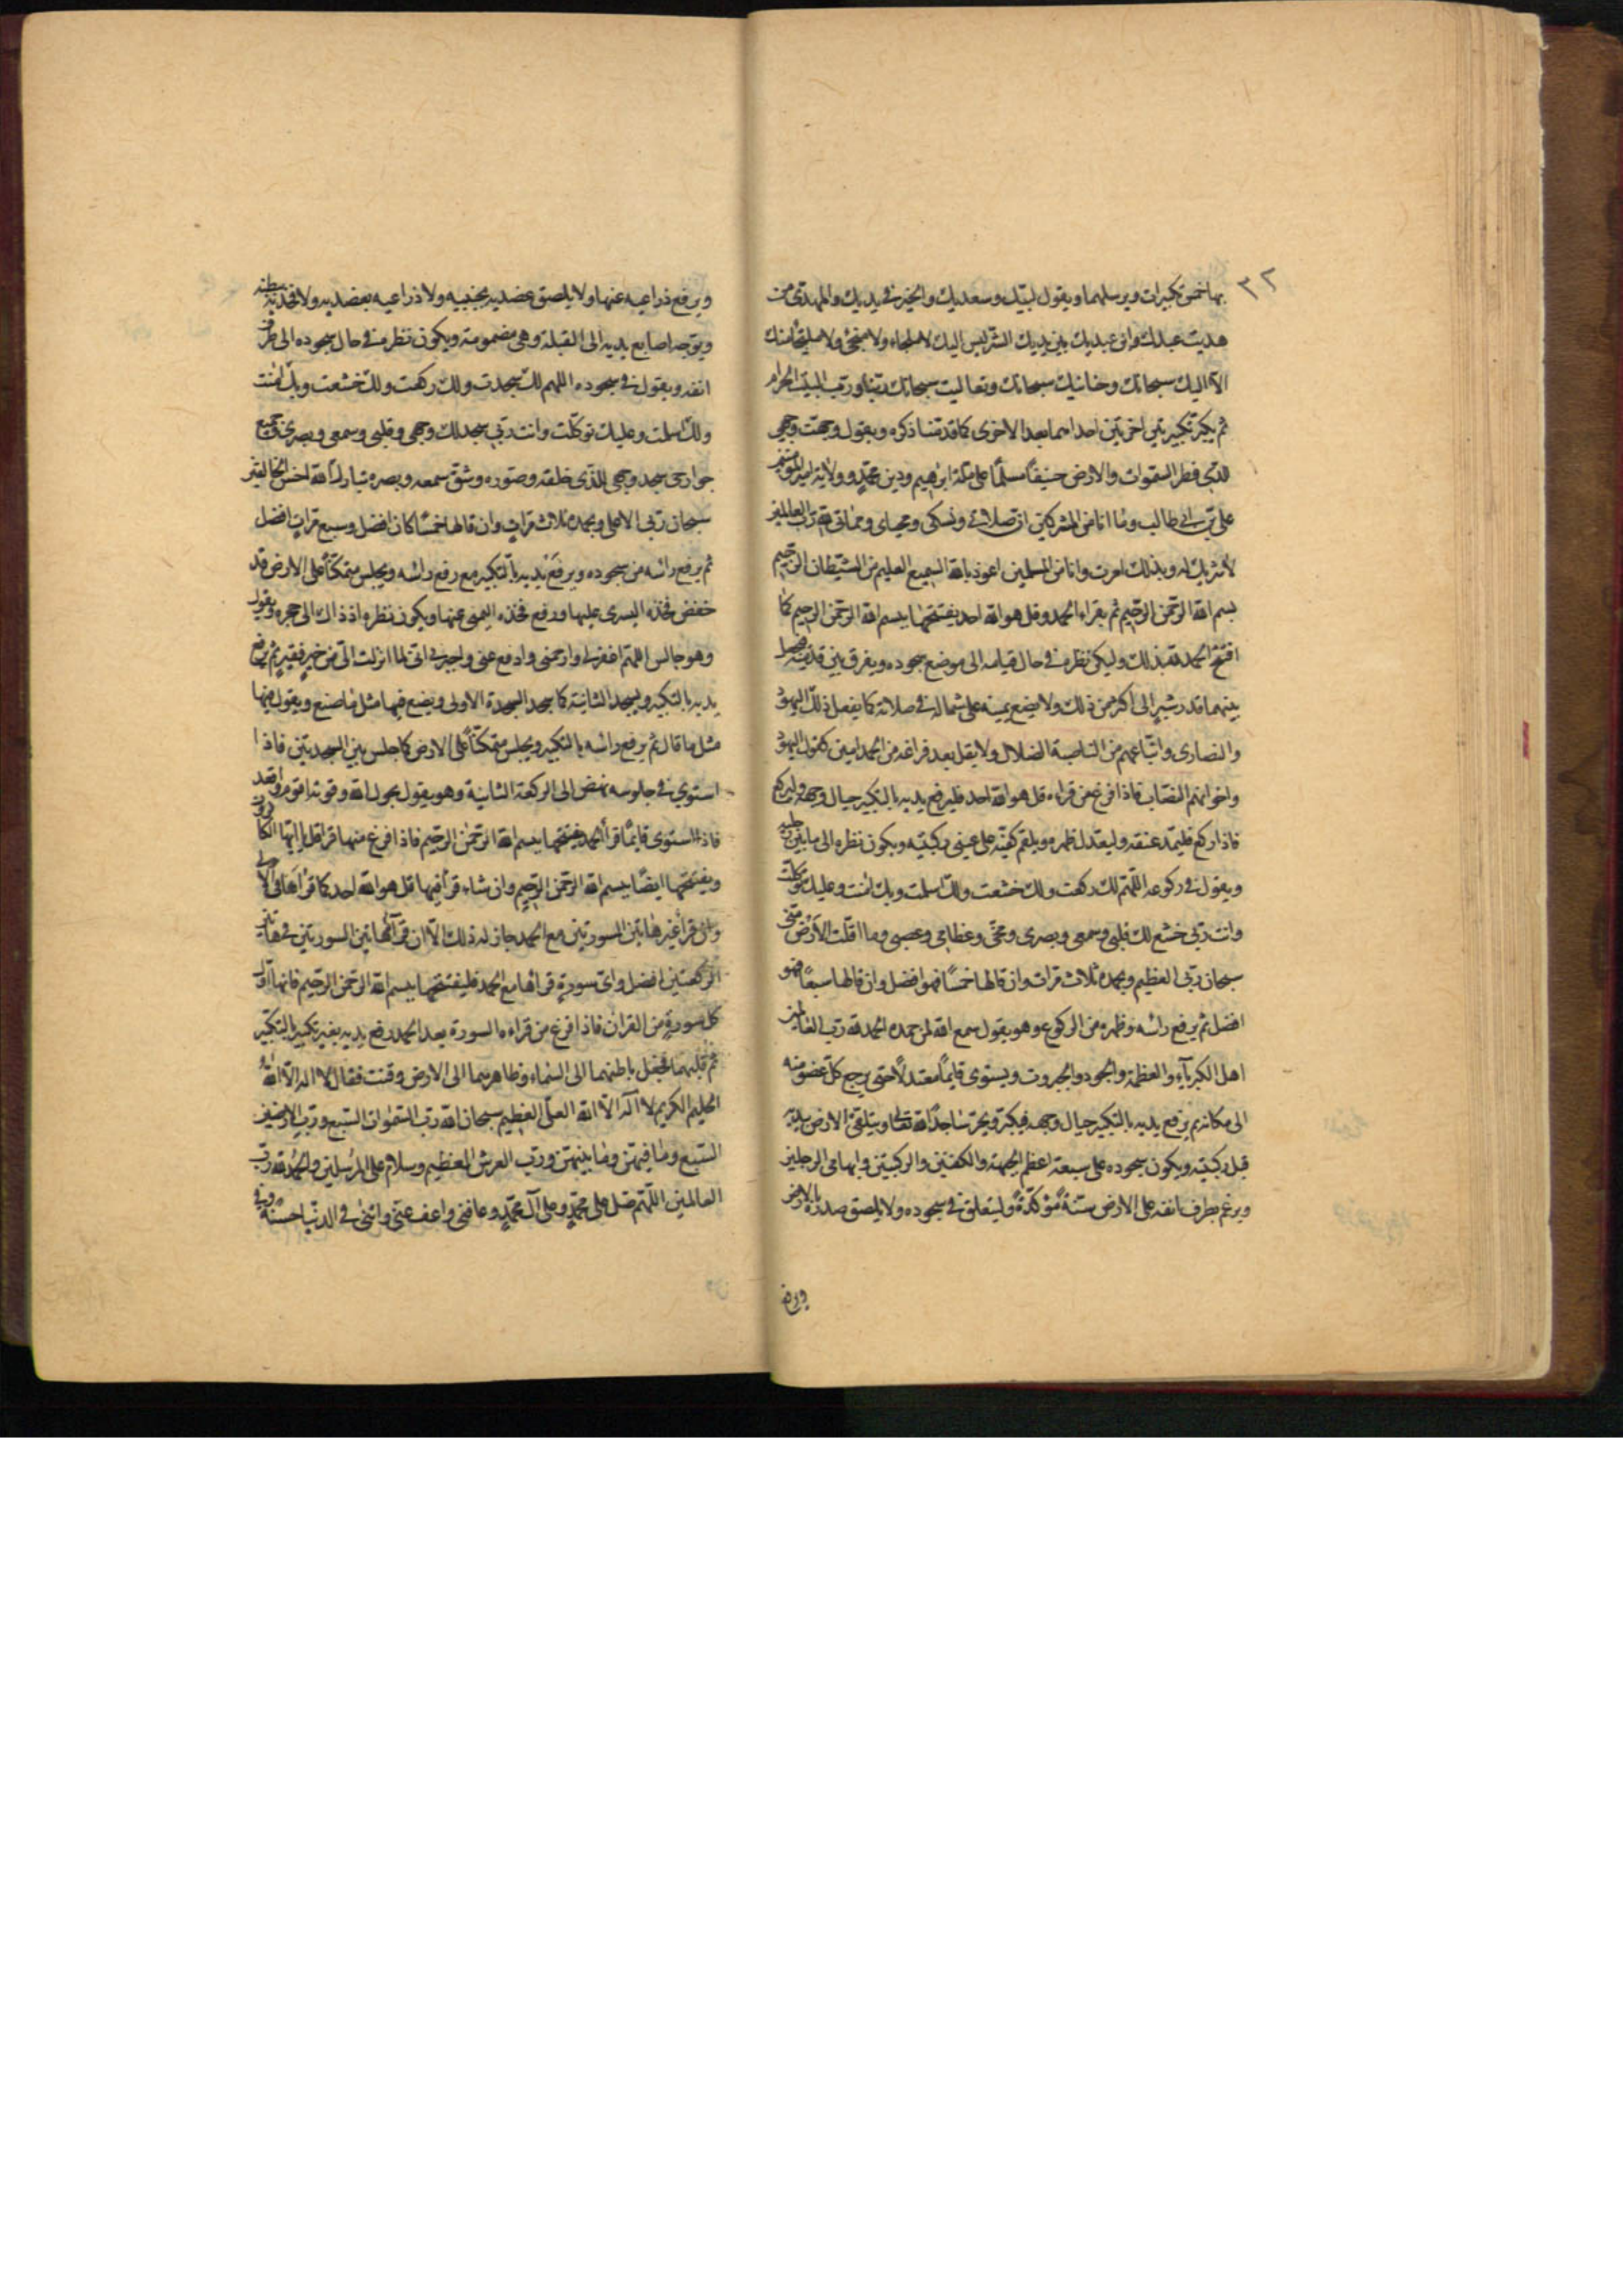 ٣٢
بها خمس تكبيرات ويرسلهما ويقول لبيك وسعديك والخير في يديك والمهدي من
هديت عبدك وابن عبديك بين يديك الشر ليس اليك لا ملجاء ولا منجى ولا ملتجا منك
الا اليك سبحانك وحنانيك سبحانك وتعاليت سبحانك ربنا ورب البيت الحرام
ثم يكبر تكبيرتين اخرتين احداهما بعد الاخرى كما قدمنا ذكره ويقول وجهت وجهي
للذي فطر السموات والارض حنيفا مسلما على ملة ابرهيم ودين محمد وولاية امير المؤمنين
على بن ابي طالب وما انا من المشركين ان صلاتي ونسكي ومحياي ومماتي لله رب العالمين
لا شريك له وبذلك امرت وانا من المسلمين اعوذ بالله السميع العليم من الشيطان الرجيم
بسم الله الرحمن الرحيم ثم يقراء الحمد وقل هو الله احد يفتتحها ببسم الله الرحمن الرحيم كما
افتتح الحمد بذلك وليكن نظره في حال قيامه الى موضع سجوده ويفرق بين قدميه فيجعل
بينهما قدر شبر الى اكثر من ذلك ولا يضع يمينه على شماله في صلاته كما يفعل ذلك اليهود
والنصارى واتباعهم من الناصبة الضلال ولا يقل بعد فراغه من الحمد امين كقول اليهود
واخوانهم النصاب فاذا فرغ من قراءه قل هو الله احد فليرفع يديه بالتكبير حيال وجهه وليركع
فاذا ركع فليمد عنقه وليعتدل ظهره ويلقم كفيه على عيني ركبتيه ويكون نظره الى ما بين رجليه
ويقول في ركوعه اللهم لك ركعت ولك خشعت ولك اسلمت وبك امنت وعليك توكلت
وانت ربي خشع لك قلبي وسمعي وبصري ومخي وعظامي وعصبي وما اقلت الارض مني
سبحان ربي العظيم وبحمده ثلاث مرات وان قالها خمسا فهو افضل وان قالها سبعا فهو
افضل ثم يرفع راسه وظهره من الركوع وهو يقول سمع الله لمن حمده الحمد لله رب العالمين
اهل الكبرياء والعظمة والجود والجبروت ويستوى قايما معتدلا حتى يرجع كل عضو منه
الى مكانه ثم يرفع يديه بالتكبير حيال وجهه فيكبر ويخر ساجدا لله تعالى ويتلقى الارض بيديه
قبل ركبتيه ويكون سجوده على سبعة اعظم الجبهة والكفين والركبتين وابهامي الرجلين
ويرغم بطرف انفه على الارض سنة مؤكدة وليتعلق في سجوده ولا يلصق صدره بالارض
ويرفع
ويرفع ذراعيه عنها ولا يلصق عضديه بجنبيه ولا ذراعيه بعضديه ولا فخذيه ببطنه
ويوجه اصابع يديه الى القبلة وهي مضمومة ويكون نظره في حال سجوده الى طرف
انفه ويقول في سجوده اللهم لك سجدت ولك ركعت ولك خشعت وبك امنت
ولك اسلمت وعليك توكلت وانت ربي سجد لك وجهي وقلبي وسمعي وبصري وجميع
جوارحي سجد وجهي للذي خلقه وصوره وشق سمعه وبصره تبارك الله احسن الخالقين
سبحان ربي الاعلى وبحمده ثلاث مرات وان قالها خمسا كان افضل وسبع مرات افضل
ثم يرفع راسه من سجوده ويرفع يديه بالتكبير مع رفع راسه ويجلس متمكنا على الارض قد
خفض فخذه اليسرى عليها ورفع فخذه اليمنى عنها ويكون نظره اذ ذاك الى حجره ويقول
وهو جالس اللهم اغفر لي وارحمني وادفع عني واجبرني اني لما انزلت الي من خير فقير ثم يرفع
يديه بالتكبير ويسجد الثانية كما سجد السجدة الاولى ويضع فيها مثل ما صنع ويقول فيها
مثل ما قال ثم يرفع راسه بالتكبير ويجلس متمكنا على الارض كما جلس بين السجدتين فاذا
استوى في جلوسه نهض الى الركعة الثانية وهو يقول بحول الله وقوته اقوم واقعد
فاذا استوى قايما قرأ الحمد يفتتحها ببسم الله الرحمن الرحيم فاذا فرغ منها قرا قل يا ايها الكافرون
ويفتتحها ايضا ببسم الله الرحمن الرحيم وان شاء قرأ فيها قل هو الله احد كما قراها في الاولى
وان قرا غير هاتين السورتين مع الحمد جاز له ذلك الا ان قرآءة هاتين السورتين في هاتين
الركعتين افضل واى سورة قراها مع الحمد فليفتتحها ببسم الله الرحمن الرحيم فانها اول
كل سورة من القران فاذا فرغ من قراءه السورة بعد الحمد رفع يديه بغير تكبير بالتكبير
ثم قلبهما فجعل باطنهما الى السماء وظاهرهما الى الارض وقنت فقال لا اله الا الله
الحليم الكريم لا اله الا الله العلي العظيم سبحان الله رب السموات السبع ورب الارضين
السبع وما فيهن وما بينهن ورب العرش العظيم وسلام على المرسلين والحمد لله رب
العالمين اللهم صل على محمد وعلى آل محمد وعافني واعف عني واتني في الدنيا حسنة وفي